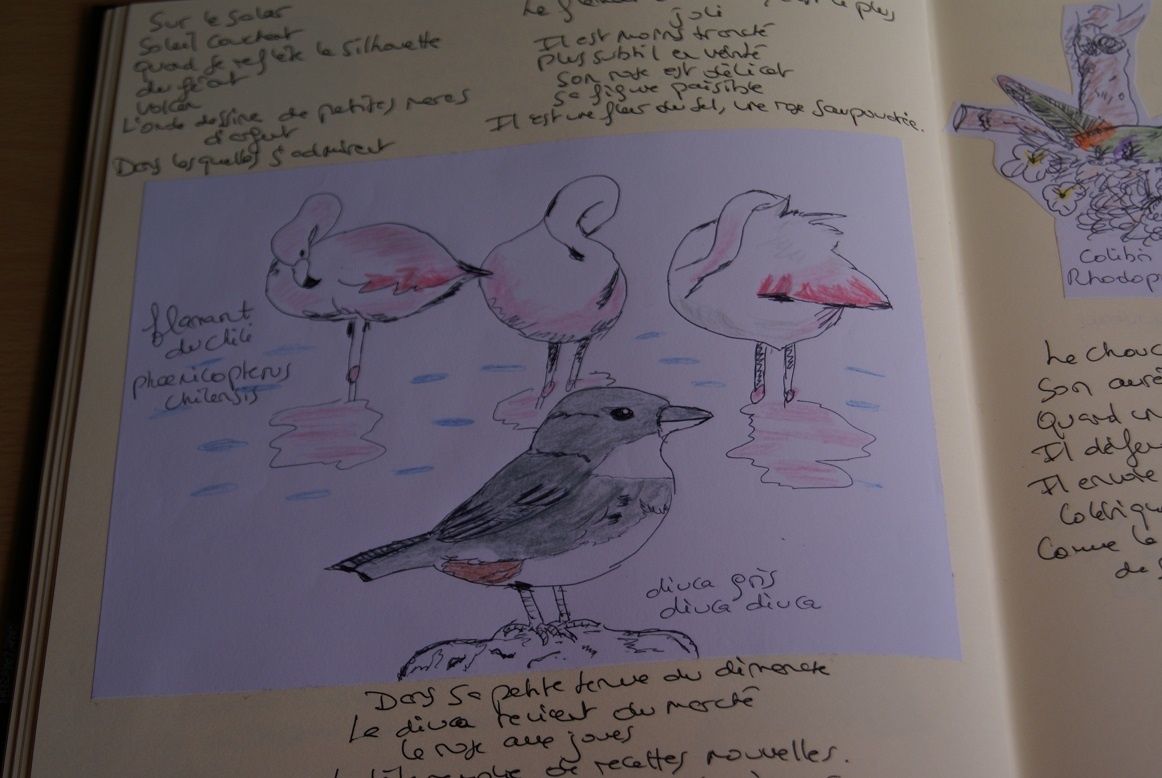 Sur le Salar
Soleil couchant
quand se reflète la silhouette
du géant
volcan
L'onde dessine de petites mares
d'argent
Dans lesquelles s'admirent
Le plus
joli
Il est moins tronché
plus subtil en vérité
son rose est délicat
sa figure paisible
Il est une fleur du sel, une rose saupoudrée.
flamant
du Chili
phoenicopterus
chilensis
diuca gris
diuca diuca
Dans sa petite tenue du dimanche
Le diuca revient du marché
le rose aux joues
de recettes nouvelles.
Colibri
Rhodop
Le chouc
Son auré
Quand un
Il défen
Il envoie
Colériqu
Comme le
de